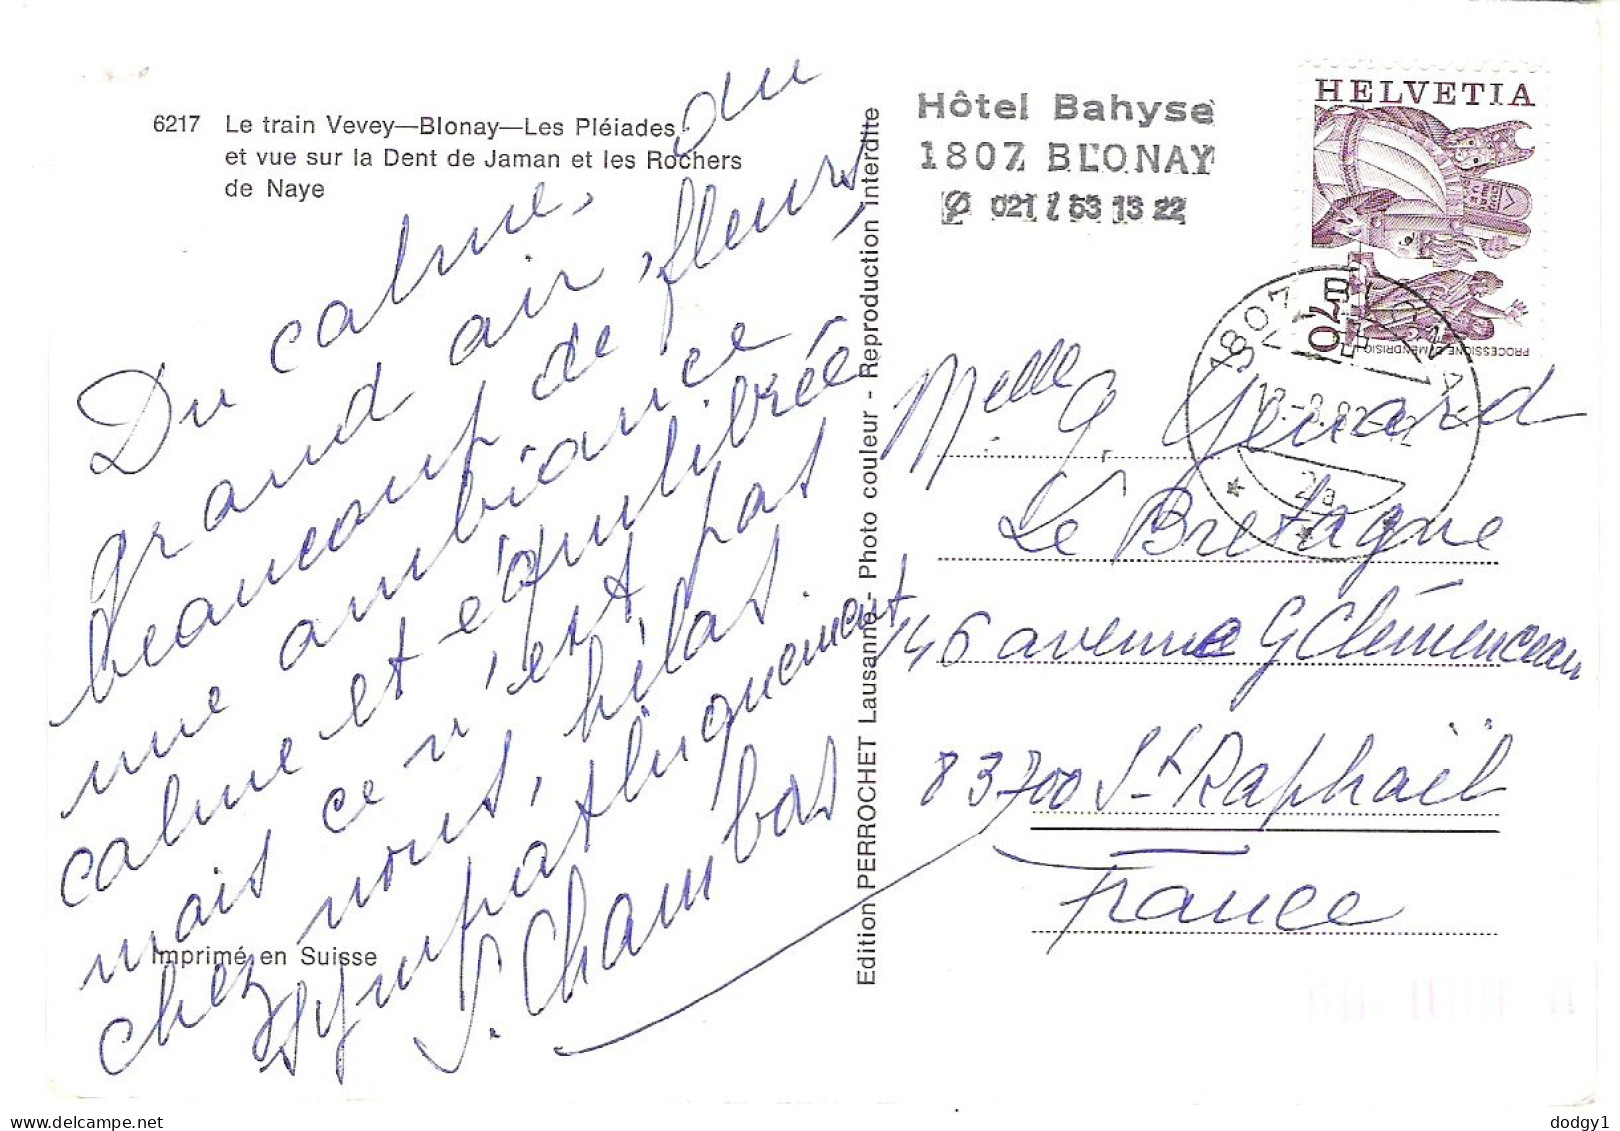 6217 Le train Vevey—Blonay—Les Pléiades
et vue sur la Dent de Jaman et les Rochers
de Naye
Du calme, du
grand air, fleurs,
beaucoup de
une ambiance
calme et équilibrée
mais ce n'est pas
chez nous, hélas
sympathiquement
S. Chambas
Imprimé en Suisse
Edition PERROCHET Lausanne - Photo couleur - Reproduction interdite
Hôtel Bahyse
1807 BLONAY
021 / 53 13 22
HELVETIA
70
PROCESSIONE DI MENDRISIO
1807 BLONAY
Melle G. Genard
Le Bretagne
146 avenue G Clémenceau
83700 St Raphaël
France
dodgy1